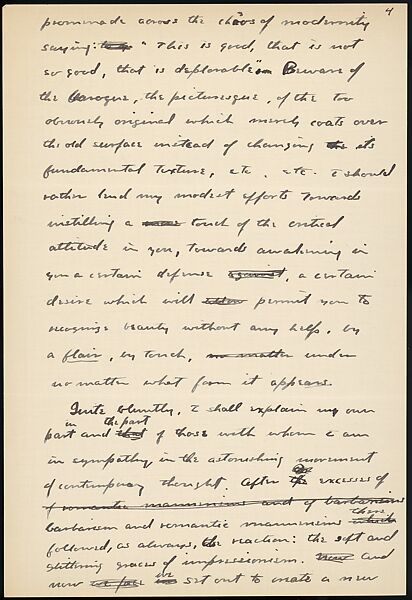 4
promenade across the chaos of modernity
saying: "This is good, that is not
so good, that is deplorable" Beware of
the Baroque, the picturesque, of the too
obviously original which merely coats over
the old surface instead of changing the its
fundamental texture, etc., etc. I should
rather lend my modest efforts towards
instilling a touch of the critical
attitude in you, towards awakening in
you a certain defense against, a certain
desire which will permit you to
recognize beauty without any help, by
a flair, by touch, no matter under
no matter what form it appears.
Quite bluntly, I shall explain my own
in the part
part and that of those with whom I am
in sympathy in the astonishing movement
of contemporary thought. After the excesses of
of romantic mannerisms and of barbarisms
barbarism and romantic mannerisms which
there
followed, as always, the reaction: the soft and
glittering graces of impressionism. Now and
now we face we set out to create a new